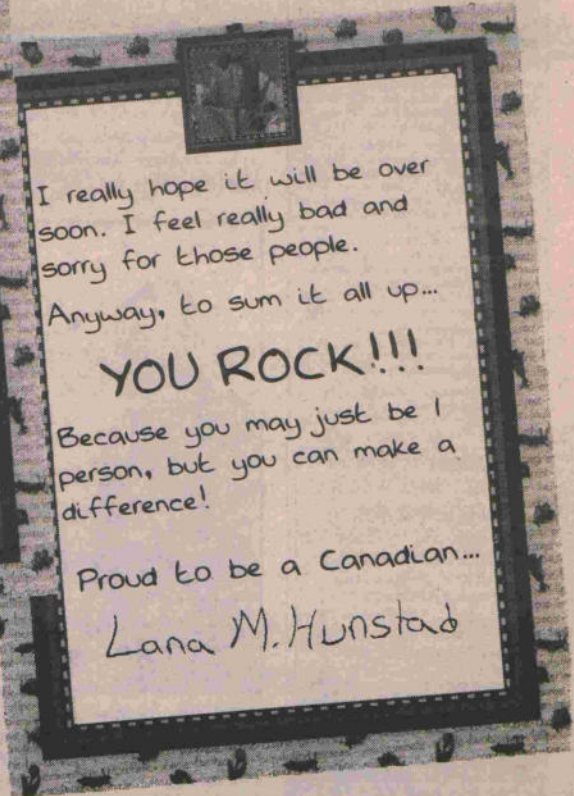 I really hope it will be over
soon. I feel really bad and
sorry for those people.
Anyway, to sum it all up...
YOU ROCK!!!
Because you may just be 1
person, but you can make a
difference!
Proud to be a Canadian...
Lana M. Hunstad